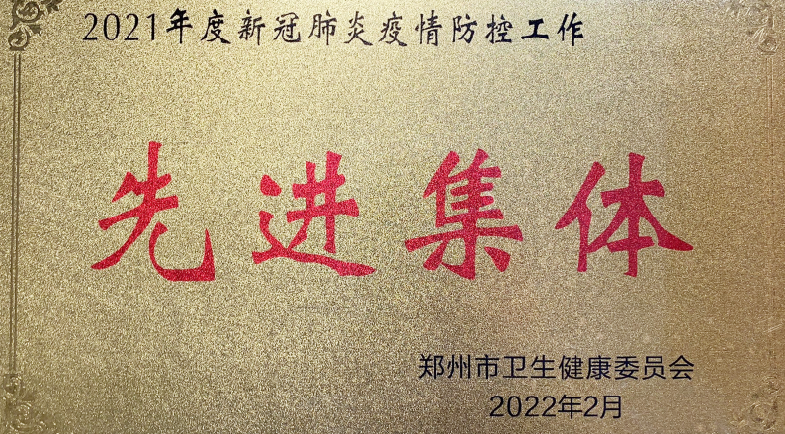 2021年度新冠肺炎疫情防控工作
先进集体
郑州市卫生健康委员会
2022年2月